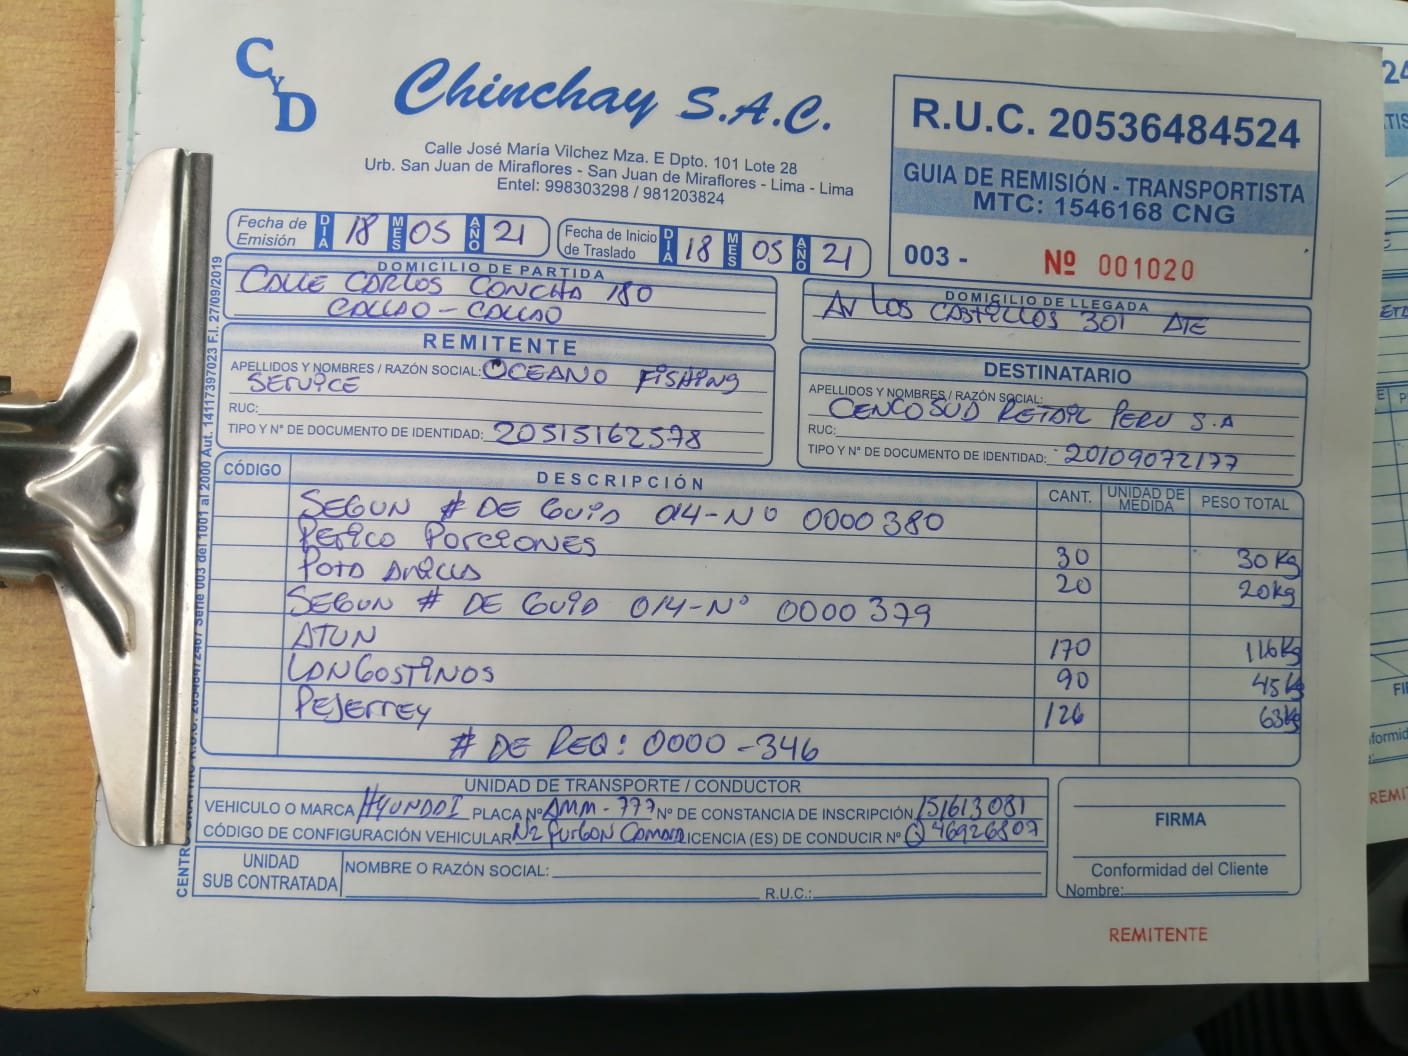 CyD
Chinchay S.A.C.
Calle José María Vilchez Mza. E Dpto. 101 Lote 28
Urb. San Juan de Miraflores - San Juan de Miraflores - Lima - Lima
Entel: 998303298 / 981203824
R.U.C. 20536484524
GUIA DE REMISIÓN - TRANSPORTISTA
MTC: 1546168 CNG
003 - Nº 001020
Fecha de Emisión DIA 18 MES 05 AÑO 21
Fecha de Inicio de Traslado DIA 18 MES 05 AÑO 21
DOMICILIO DE PARTIDA
CALLE CARLOS CONCHA 180
CALLAO - CALLAO
DOMICILIO DE LLEGADA
AV LOS CASTILLOS 301 ATE
REMITENTE
APELLIDOS Y NOMBRES / RAZÓN SOCIAL: OCEANO FISHING
SERVICE
RUC:
TIPO Y Nº DE DOCUMENTO DE IDENTIDAD: 20515162578
DESTINATARIO
APELLIDOS Y NOMBRES / RAZÓN SOCIAL:
CENCOSUD RETAIL PERU S.A
RUC:
TIPO Y Nº DE DOCUMENTO DE IDENTIDAD: 20109072177
CÓDIGO DESCRIPCIÓN CANT. UNIDAD DE MEDIDA PESO TOTAL
SEGUN # DE GUIA 014-Nº 0000380
PERICO PORCIONES 30 30 Kg
POTA ANILLAS 20 20kg
SEGUN # DE GUIA 014-Nº 0000379
ATUN 170 116 Kg
LANGOSTINOS 90 45 Kg
PEJERREY 126 63Kg
# DE REQ: 0000-346
UNIDAD DE TRANSPORTE / CONDUCTOR
VEHICULO O MARCA HYUNDAI PLACA Nº AMM-777 Nº DE CONSTANCIA DE INSCRIPCIÓN 151613081
CÓDIGO DE CONFIGURACIÓN VEHICULAR N2 FURGON LICENCIA (ES) DE CONDUCIR Nº Q 46926807
UNIDAD SUB CONTRATADA
NOMBRE O RAZÓN SOCIAL:
R.U.C.:
FIRMA
Conformidad del Cliente
Nombre:
REMITENTE
Serie 003 del 1001 al 2000 Aut. 14117397023 F.I. 27/09/2019